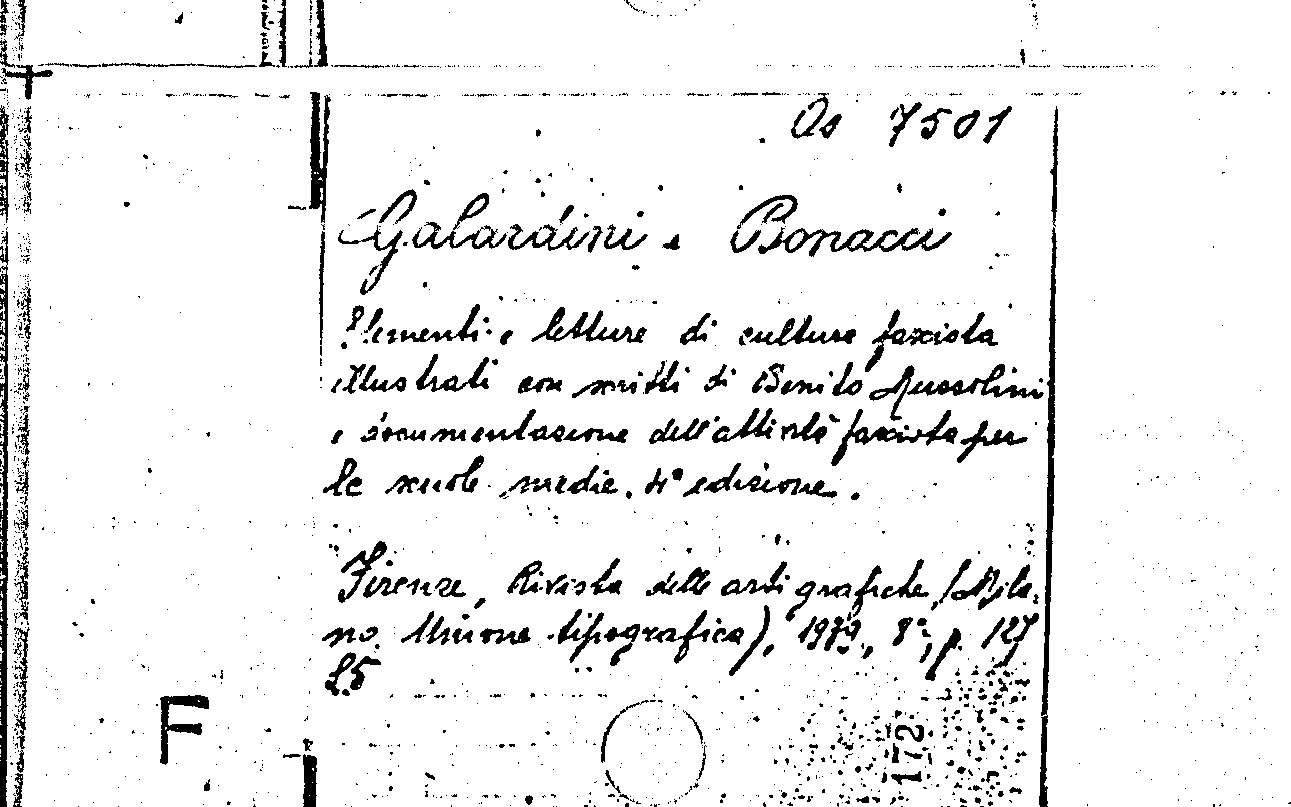 Os 7501
Galardini e Bonacci
Elementi e letture di cultura fascista
illustrati con scritti di Benito Mussolini
e documentazione dell'attività fascista per
le scuole medie. 4ª edizione.
Firenze, Rivista delle arti grafiche, (Mila-
no. Unione tipografica), 8°, p. 127
L5
F
172